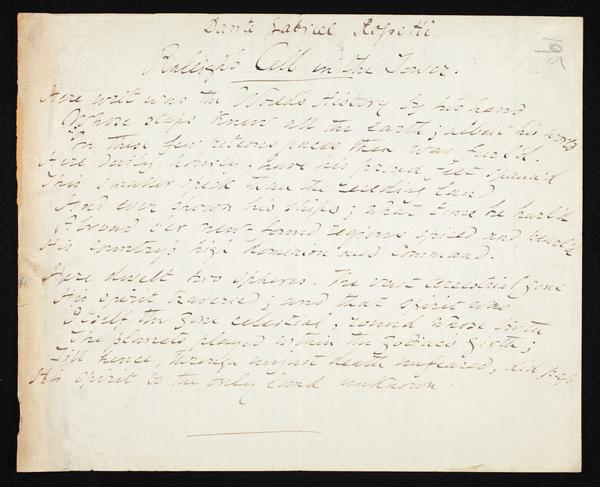 Dante Gabriel Rossetti
195
Raleigh's Cell in the Tower.
Here writ was the World's History by his hand
Whose steps knew all the earth; albeit his world
In these few piteous paces then was furl'd.
Here daily, hourly, have his proud feet spann'd
This smaller speck than the receding land
Had ever shown his ships; what time he hurl'd
Abroad o'er new found regions spiced and pearl'd
His country's high dominion and command.
Here dwelt two spheres. The vast terrestrial zone
His spirit traversed; and that spirit was
Itself the zone celestial, round whose birth
The planets played within the zodiac's girth;
Till hence, through unjust death unfeared, did pass
His spirit to the only land unknown.